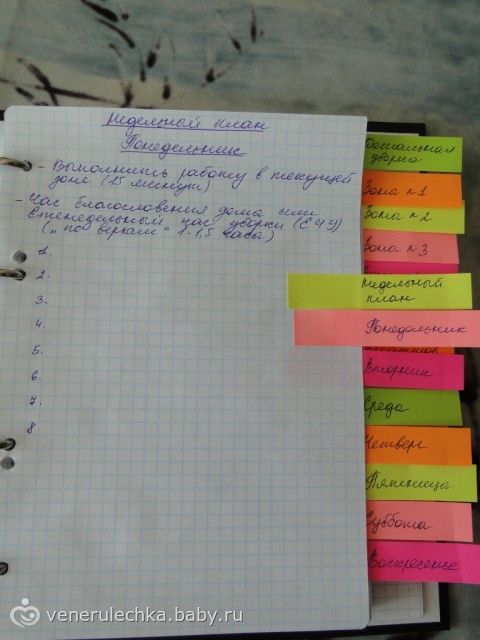 Недельный план
Понедельник
- Выполнить работу в текущей
зоне (15 минут)
- Час благословения дома или
Еженедельный час уборки (ЕЧУ)
(„по верхам" 1-1,5 часа)
1.
2.
3.
4.
5.
6.
7.
8
Детальная
уборка
Зона №1
Зона №2
Зона №3
Недельный
план
Понедельник
Вторник
Среда
Четверг
Пятница
Суббота
Воскресенье
venerulechka.baby.ru